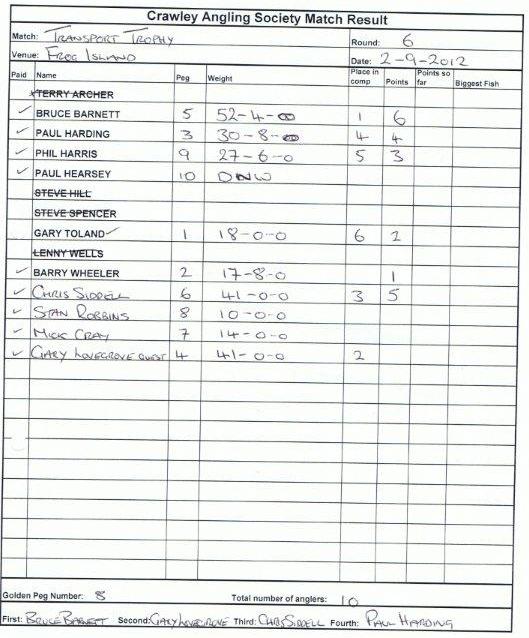 Crawley Angling Society Match Result
Match: TRANSPORT TROPHY Round: 6
Venue: FROG ISLAND Date: 2-9-2012
Paid Name Peg Weight Place in comp Points Points so far Biggest Fish
x TERRY ARCHER
✓ BRUCE BARNETT 5 52-4-0 1 6
✓ PAUL HARDING 3 30-8-0 4 4
✓ PHIL HARRIS 9 27-6-0 5 3
✓ PAUL HEARSEY 10 DNW
STEVE HILL
STEVE SPENCER
GARY TOLAND ✓ 1 18-0-0 6 2
LENNY WELLS
✓ BARRY WHEELER 2 17-8-0 1
✓ CHRIS SIDDELL 6 41-0-0 3 5
✓ STAN ROBBINS 8 10-0-0
✓ MICK CRAY 7 14-0-0
✓ GARY LOVEGROVE GUEST 4 41-0-0 2
Golden Peg Number: 8 Total number of anglers: 10
First: BRUCE BARNETT Second: GARY LOVEGROVE Third: CHRIS SIDDELL Fourth: PAUL HARDING